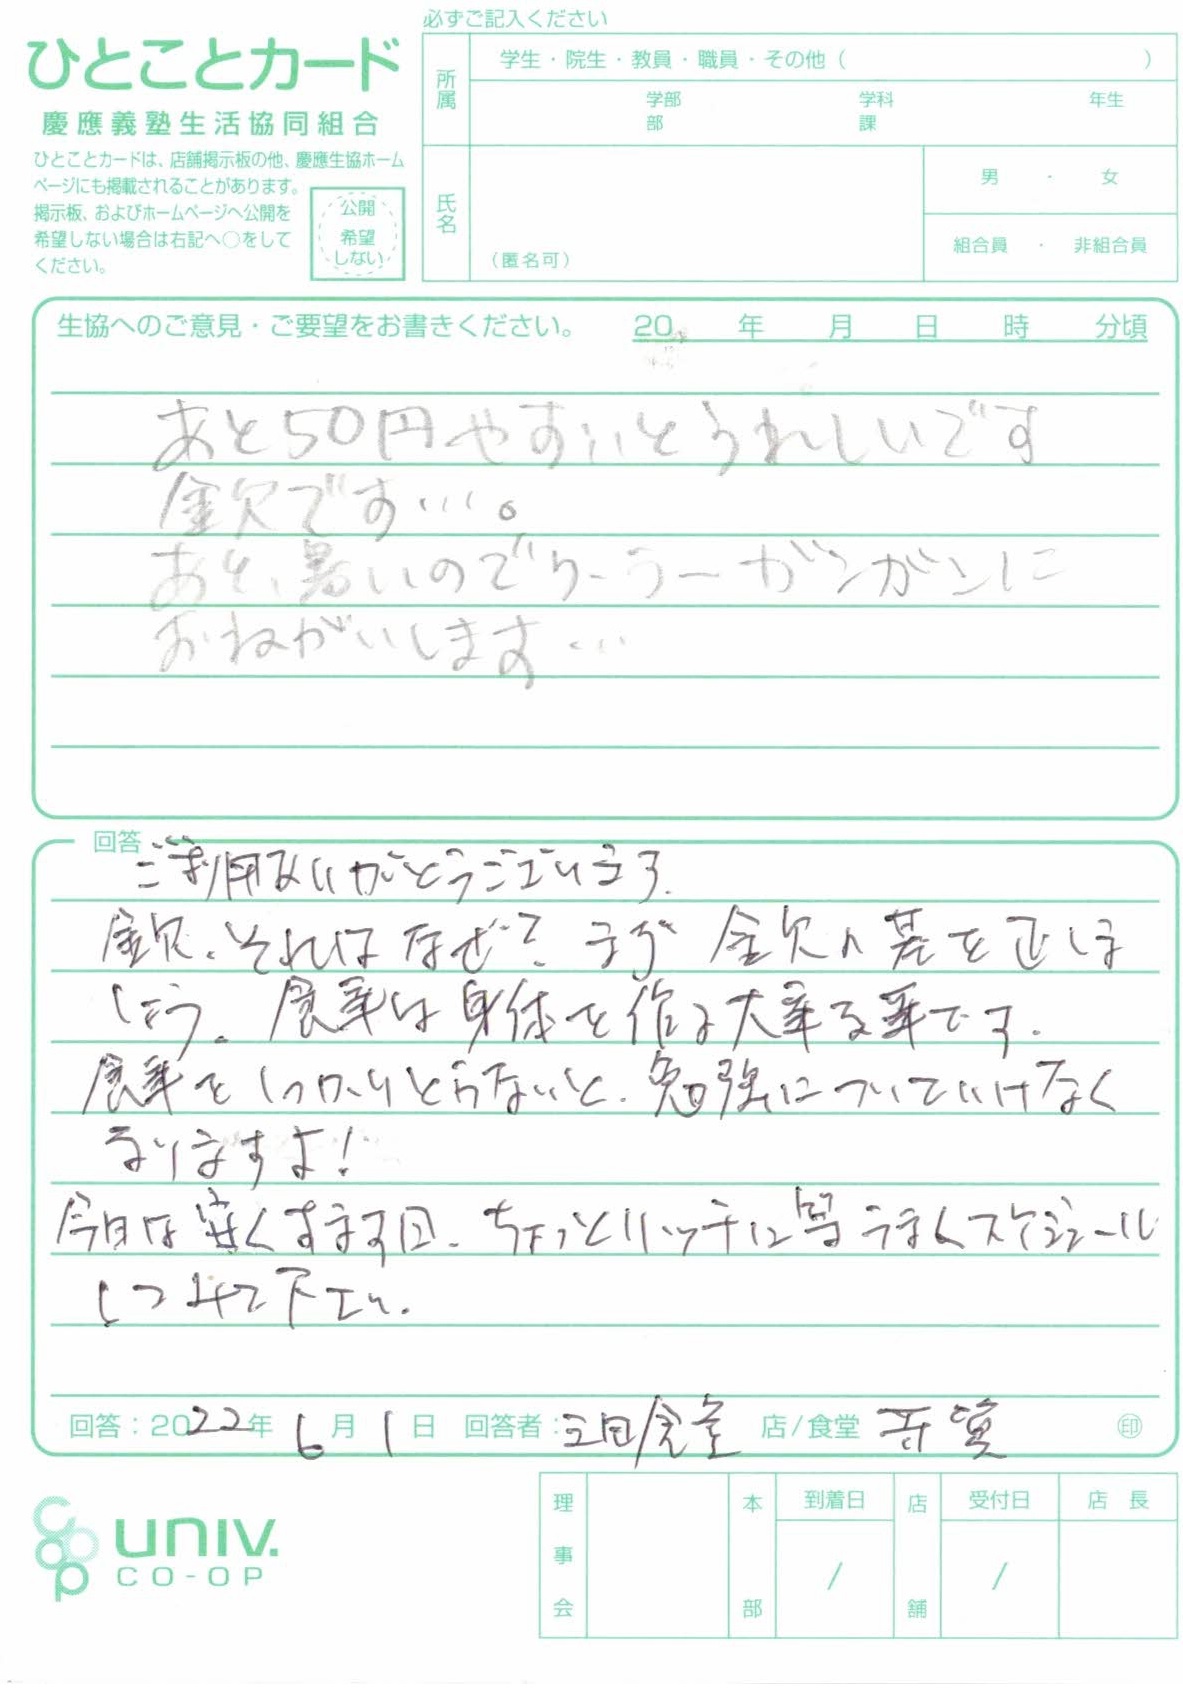 必ずご記入ください
ひとことカード
慶應義塾生活協同組合
ひとことカードは、店舗掲示板の他、慶應生協ホーム
ページにも掲載されることがあります。
掲示板、およびホームページへ公開を
希望しない場合は右記へ○をして
ください。
公開
希望
しない
所属
学生・院生・教員・職員・その他（ ）
学部 学科 年生
部 課
氏名
（匿名可）
男 ・ 女
組合員 ・ 非組合員
生協へのご意見・ご要望をお書きください。 20 年 月 日 時 分頃
あと50円やすいとうれしいです
金欠です…。
あと、暑いのでクーラーガンガンに
おねがいします…
回答
ご利用ありがとうございます.
金欠.それはなぜ?まず 金欠の基を正しま
しょう。食事は身体を作る大事な事です.
食事をしっかりとらないと.勉強についていけなく
なりますよ!
今日は安くすます日.ちょっとリッチに うまくスケジュール
してみて下さい.
回答：2022年 6月 1日 回答者：三田食堂 店/食堂 印
univ.
CO-OP
理事会
本部
到着日
/
店舗
受付日
/
店長